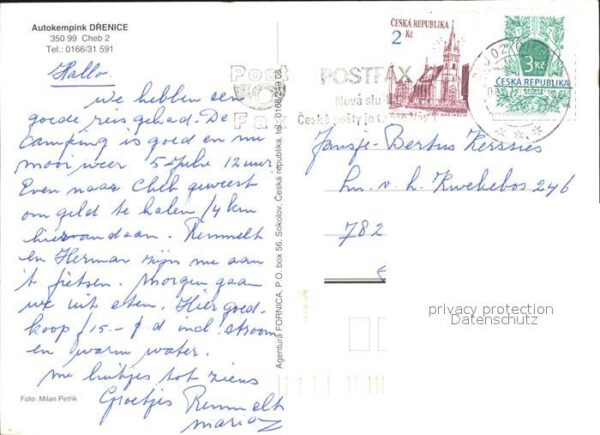 Autokempink DŘENICE
350 99 Cheb 2
Tel.: 0166/31 591
Hallo
We hebben een
goede reis gehad. De
Camping is goed en nu
mooi weer 5 Julie 12 uur
Even naar Cheb geweest
om geld te halen /4 km
hiervandaan. Remmelt
en Herman zijn nu aan
't fietsen. Morgen gaan
we uit eten. Hier goed-
koop ƒ15.- p d incl. stroom
en warm water.
tot ziens
Groetjes Remmelt
Foto: Milan Petřík
Agentura FORNICA, P.O. box 56, Sokolov, Česká republika, tel.: 0168/249 08
Post
Fax
POSTFAX
Nová
České pošty je
ČESKÁ REPUBLIKA
2 Kč
3 Kč
ČESKÁ REPUBLIKA
Jansje-Bertus Kerssies
Ln. v. h. Kwekebos 246
782
privacy protection
Datenschutz